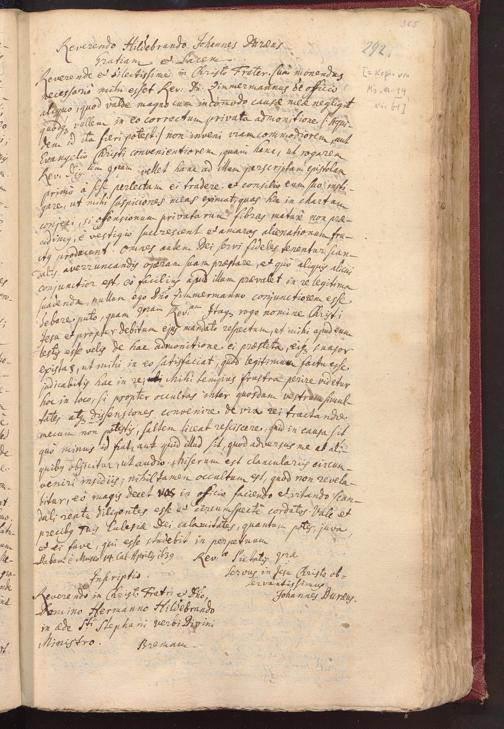 365
292.
Reverendo Hildebrando Johannes Duræus
Gratiam et Pacem.
Reverende et dilectissime in Christo Frater. Cum monendus
necessario mihi esset Rev. Dn. Zimmermannus de officio
aliquo, quod valde magno cum incommodo causæ meæ negligit
quodq; vellem in eo correctum privata admonitione
dem id ita fieri potest) non inveni viam commodiorem, aut
Evangelio Christi convenientiorem, quam hanc, ut rogarem
Rev. vellet hanc ad illum perscriptam epistolam
primo à se perlectam ei tradere, et consilio eum suo insti-
gare, ut mihi suspiciones meas eximat, quas hic in chartam
conjeci, si offensionum privatarum fibras mature non præ-
cidimus, è vestigio succrescent et amaros alienationum fru-
ctus producent. Omnes autem Dei servi fideles tenentur scan-
dalis averruncandis operam suam præstare, et quo aliquis alicui
conjunctior est, eo facilius apud illum prævalet in re legitima
suadenda, nullum ego Dno Zimmermanno conjunctiorem esse
debere puto, quam Rev. rogo nomine Christi
Jesu et propter debitum ejus mandato respectum, ut mihi apud eum
testis esse velis de hac admonitione ei præstita, suasor
existas, ut mihi in eo satisfaciat, quod legitimum factu esse
judicabitis hac in re, mihi tempus frustra perire videtur
hoc in loco, si propter occultas inter quosdam vestrum simul-
tates atq; dissensiones convenire de via rei tractandæ
mecum non potestis, saltem liceat resciscere, quid in causa sit
quo minus id fiat, aut quid illud sit, quod adversus me ab ali-
quibus objicitur, ut audio. Miserum est clancularijs circum-
veniri insidijs; nihil tamen occultum est, quod non revela-
bitur, et magis decet vos in officio faciendo et vitando scan-
dali reatu diligentes esse et circumspecte cordatos. Vale et
precibus tuis Ecclesiæ Dei calamitates, quantum potes, juva,
et ei fave, qui esse studebit in perpetuum
Dabam è Museo 14. Cal. Aprilis 1639 Rev. Pietatis
Servus in Jesu Christo ob-
servantissimus
Johannes Duræus.
Inscriptio.
Reverendo in Christo Fratri et Dno
Domino Hermanno Hildebrando
in æde Sti Stephani verbi Divini
Ministro. Bremam.